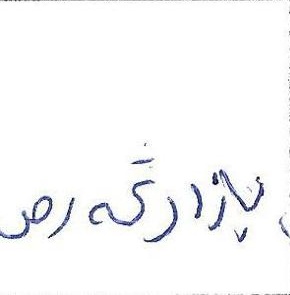 بازارگه رص